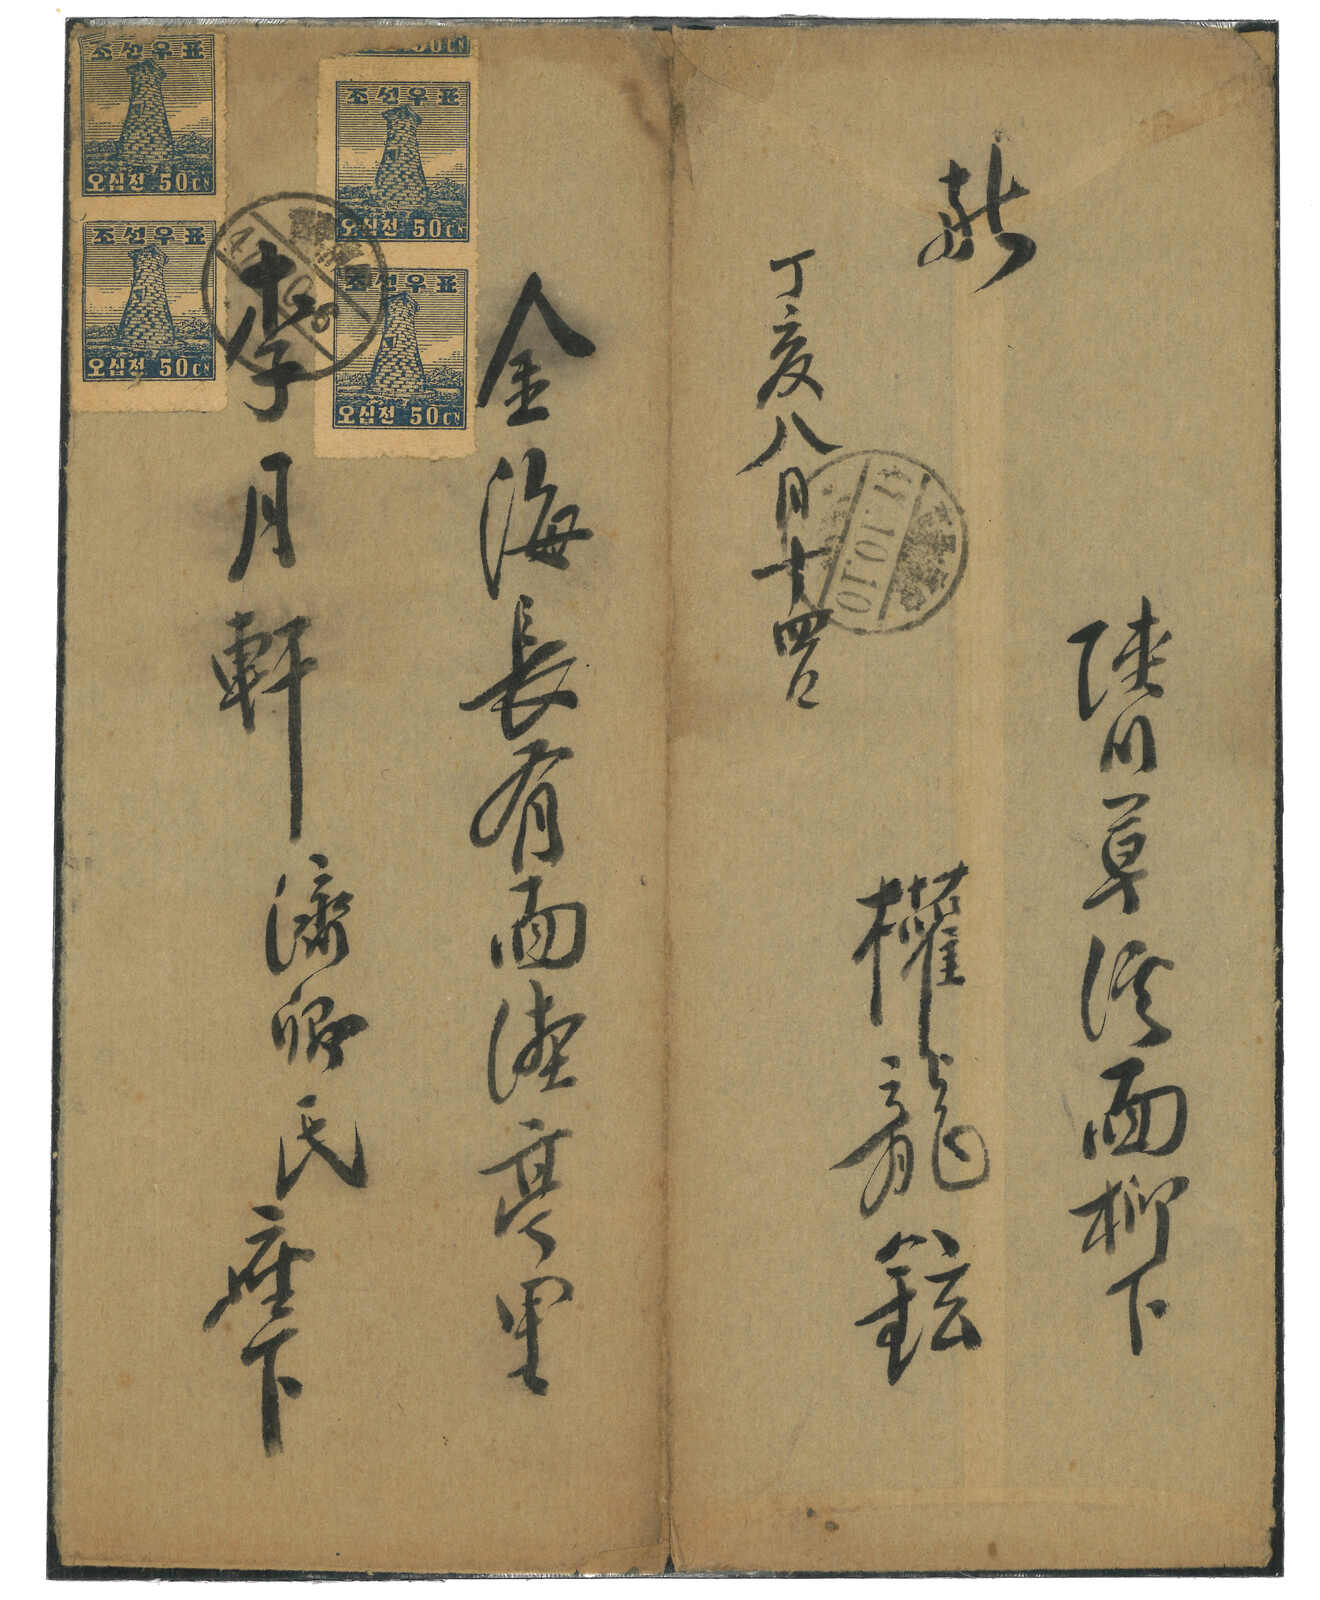 조선우표
오십전 50CN
조선우표
오십전 50CN
50CN
조선우표
오십전 50CN
조선우표
오십전 50CN
金海長有面德亭里
李月軒 濟卿氏 座下
陜川草溪面柳下
權龍鉉
丁亥八月十四日
47.10.10